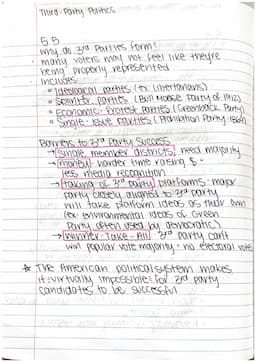 Third-Party Politics
5.5
Why do 3rd Parties form?
• many voters may not feel like they're
being properly represented
• includes:
• Ideological parties (ex. Libertarians)
• Splinter parties (Bull Moose Party of 1912)
• Economic-Protest Parties (Greenback Party)
• Single-Issue Parties (Prohibition Party
Barriers to 3rd Party Success
→ Single member districts: need majority
→ money: harder time raising $ •
less media recognition
→ taking of 3rd party platforms: major
party closely aligned to 3rd party
will take platform ideas as their own
(ex. environmental ideas of Green
Party often used by democratic)
→ Winner-Take-All: 3rd party can't
win popular vote majority = no electoral votes
* The American political system makes
it virtually impossible for 3rd party
candidates to be successful